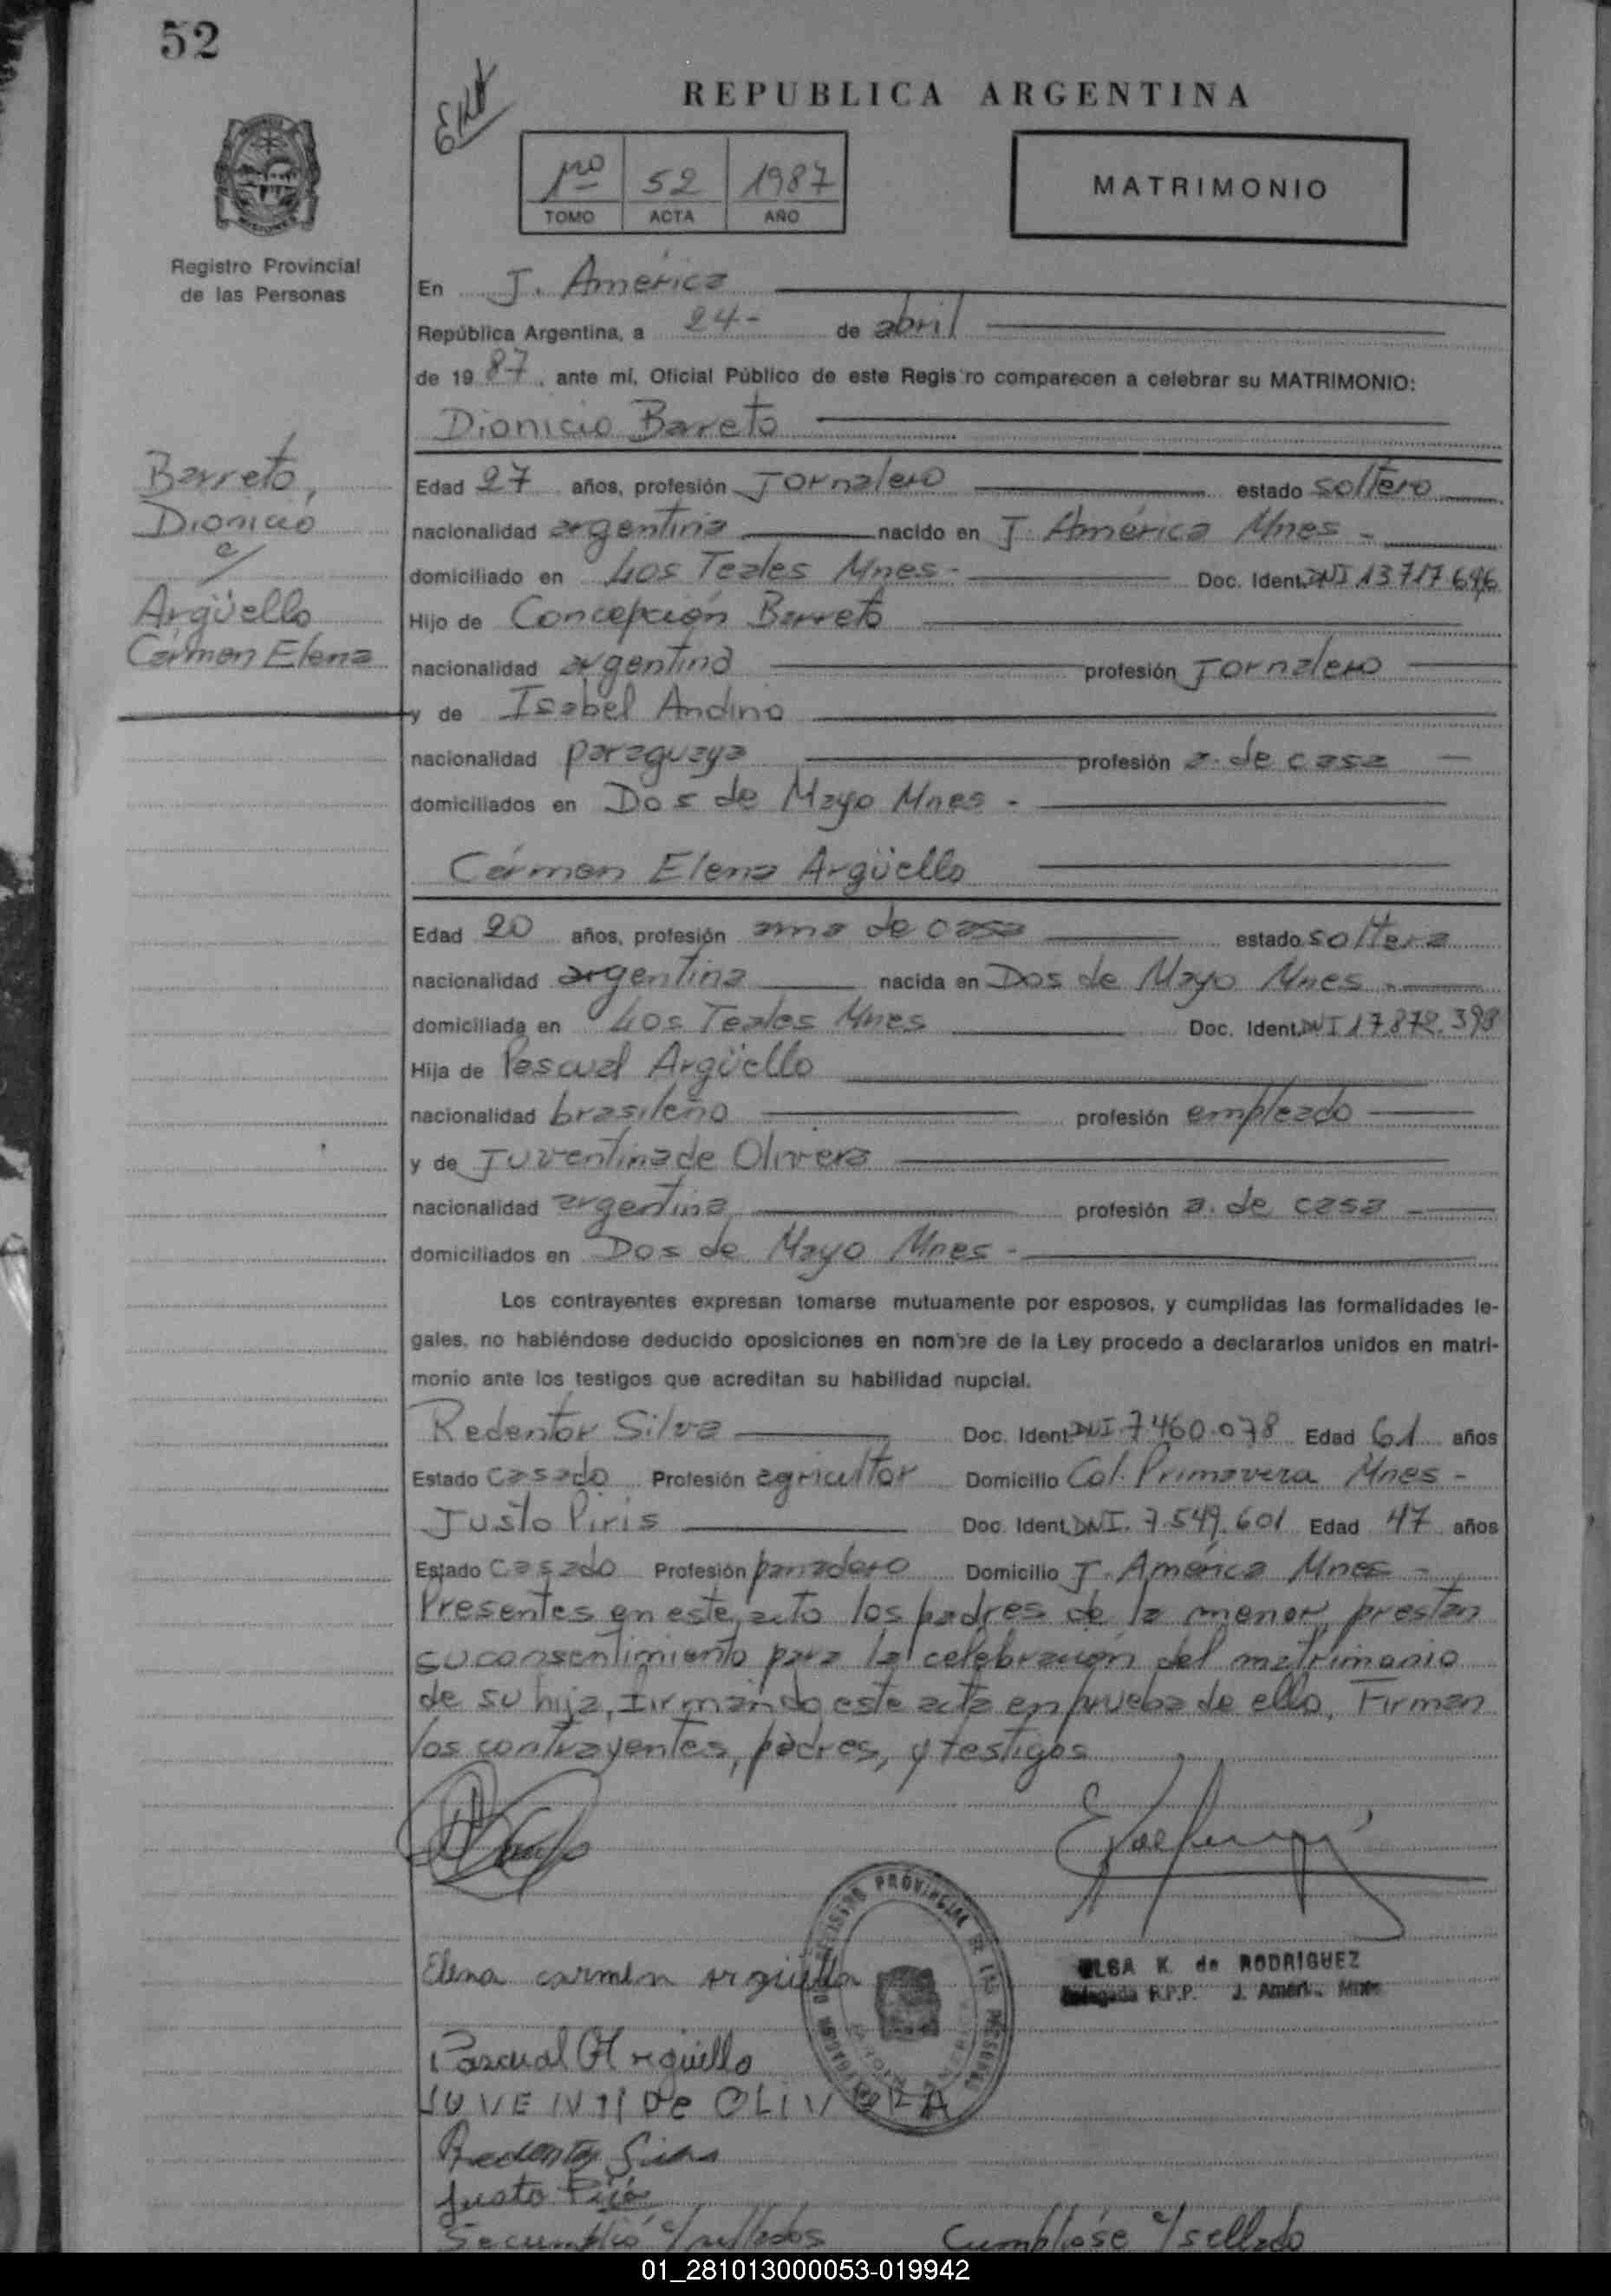 52
REPUBLICA ARGENTINA
1ro 52 1987
TOMO ACTA AÑO
MATRIMONIO
Registro Provincial
de las Personas
En J. América
República Argentina, a 24- de abril
de 1987, ante mí, Oficial Público de este Registro comparecen a celebrar su MATRIMONIO:
Dionicio Barreto
Barreto,
Dionicio
c/
Argüello
Cármen Elena
Edad 27 años, profesión Jornalero estado soltero
nacionalidad argentina nacido en J. América Mnes -
domiciliado en Los Teales Mnes- Doc. Ident. DNI 13.717.696
Hijo de Concepción Barreto
nacionalidad argentina profesión Jornalero
y de Isabel Andino
nacionalidad paraguaya profesión a. de casa
domiciliados en Dos de Mayo Mnes -
Cármen Elena Argüello
Edad 20 años, profesión ama de casa estado soltera
nacionalidad argentina nacida en Dos de Mayo Mnes -
domiciliada en Los Teales Mnes Doc. Ident. DNI 17.872.398
Hija de Pascual Argüello
nacionalidad brasileño profesión empleado
y de Juventina de Olivera
nacionalidad argentina profesión a. de casa
domiciliados en Dos de Mayo Mnes -
Los contrayentes expresan tomarse mutuamente por esposos, y cumplidas las formalidades le-
gales, no habiéndose deducido oposiciones en nombre de la Ley procedo a declararlos unidos en matri-
monio ante los testigos que acreditan su habilidad nupcial.
Redentor Silva Doc. Ident. DNI 7.460.078 Edad 61 años
Estado casado Profesión agricultor Domicilio Col. Primavera Mnes -
Justo Piris Doc. Ident. DNI. 7.549.601 Edad 47 años
Estado casado Profesión panadero Domicilio J. América Mnes -
Presentes en este acto los padres de la menor, prestan
su consentimiento para la celebración del matrimonio
de su hija, firmando este acta en prueba de ello. Firman
los contrayentes, padres, y testigos
REGISTRO PROVINCIAL DE LAS PERSONAS
Elena carmen Arguello
OLGA K. de RODRIGUEZ
Delegada R.P.P. J. Améri.. Mnes
Pascual Argüello
JUVENTI De OLIVERA
Redentor Silva
Justo Piris
Se cumplió c/sellados Cumplióse c/sellado
01_281013000053-019942